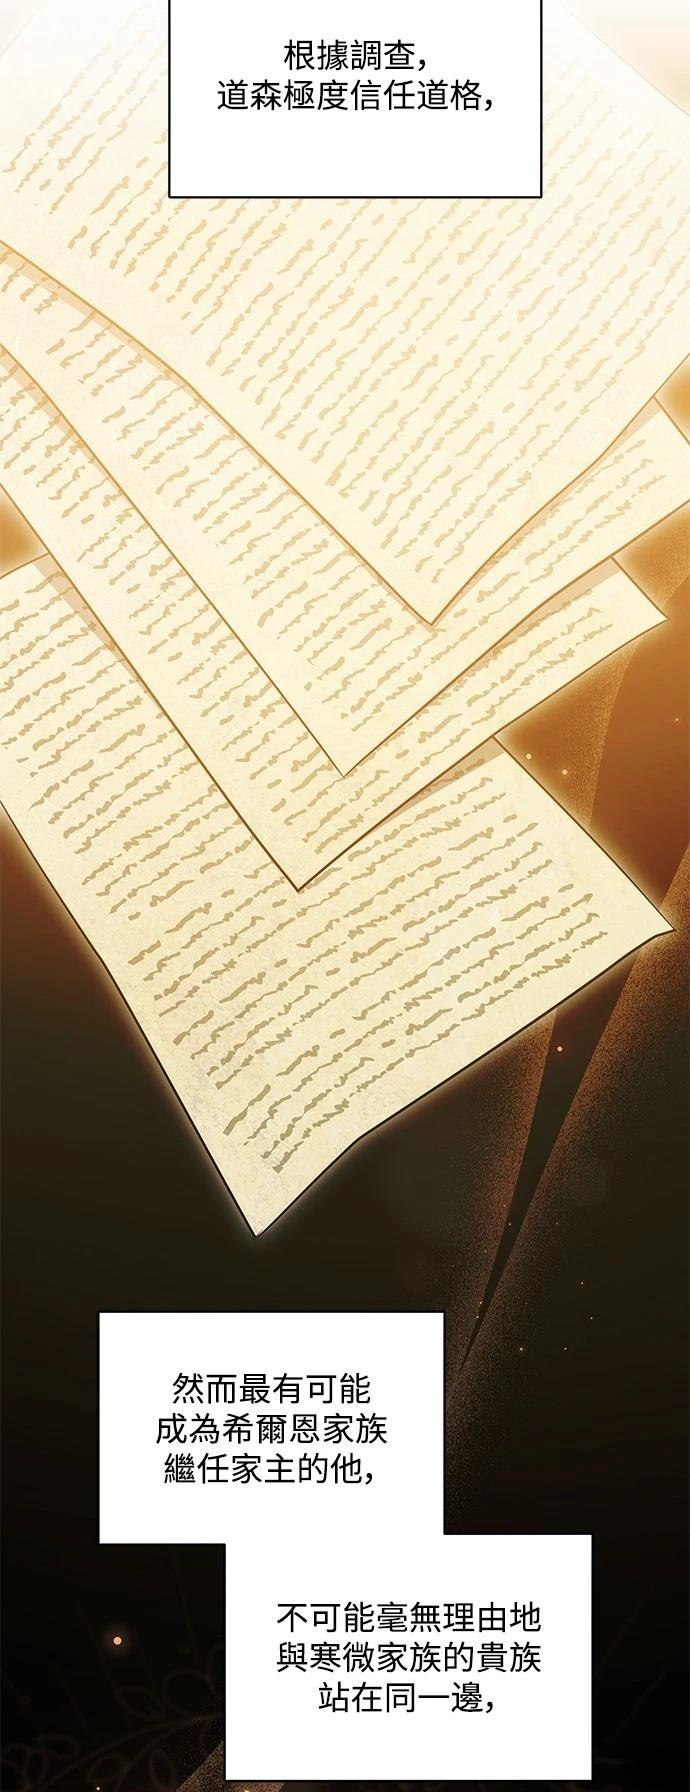 根據調查,
道森極度信任道格,
然而最有可能
成為希爾恩家族
繼任家主的他,
不可能毫無理由地
與寒微家族的貴族
站在同一邊,